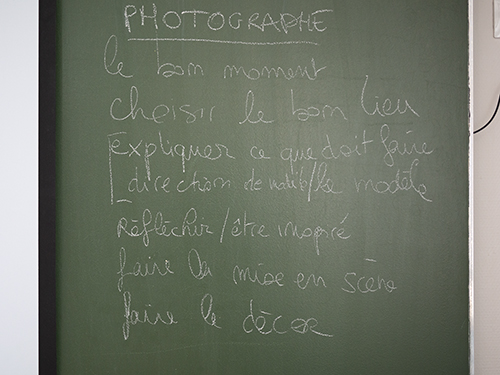 PHOTOGRAPHE
le bon moment
choisir le bon lieu
Expliquer ce que doit faire
direction de / le modèle
Réfléchir / être inspiré
faire la mise en scène
faire le décor